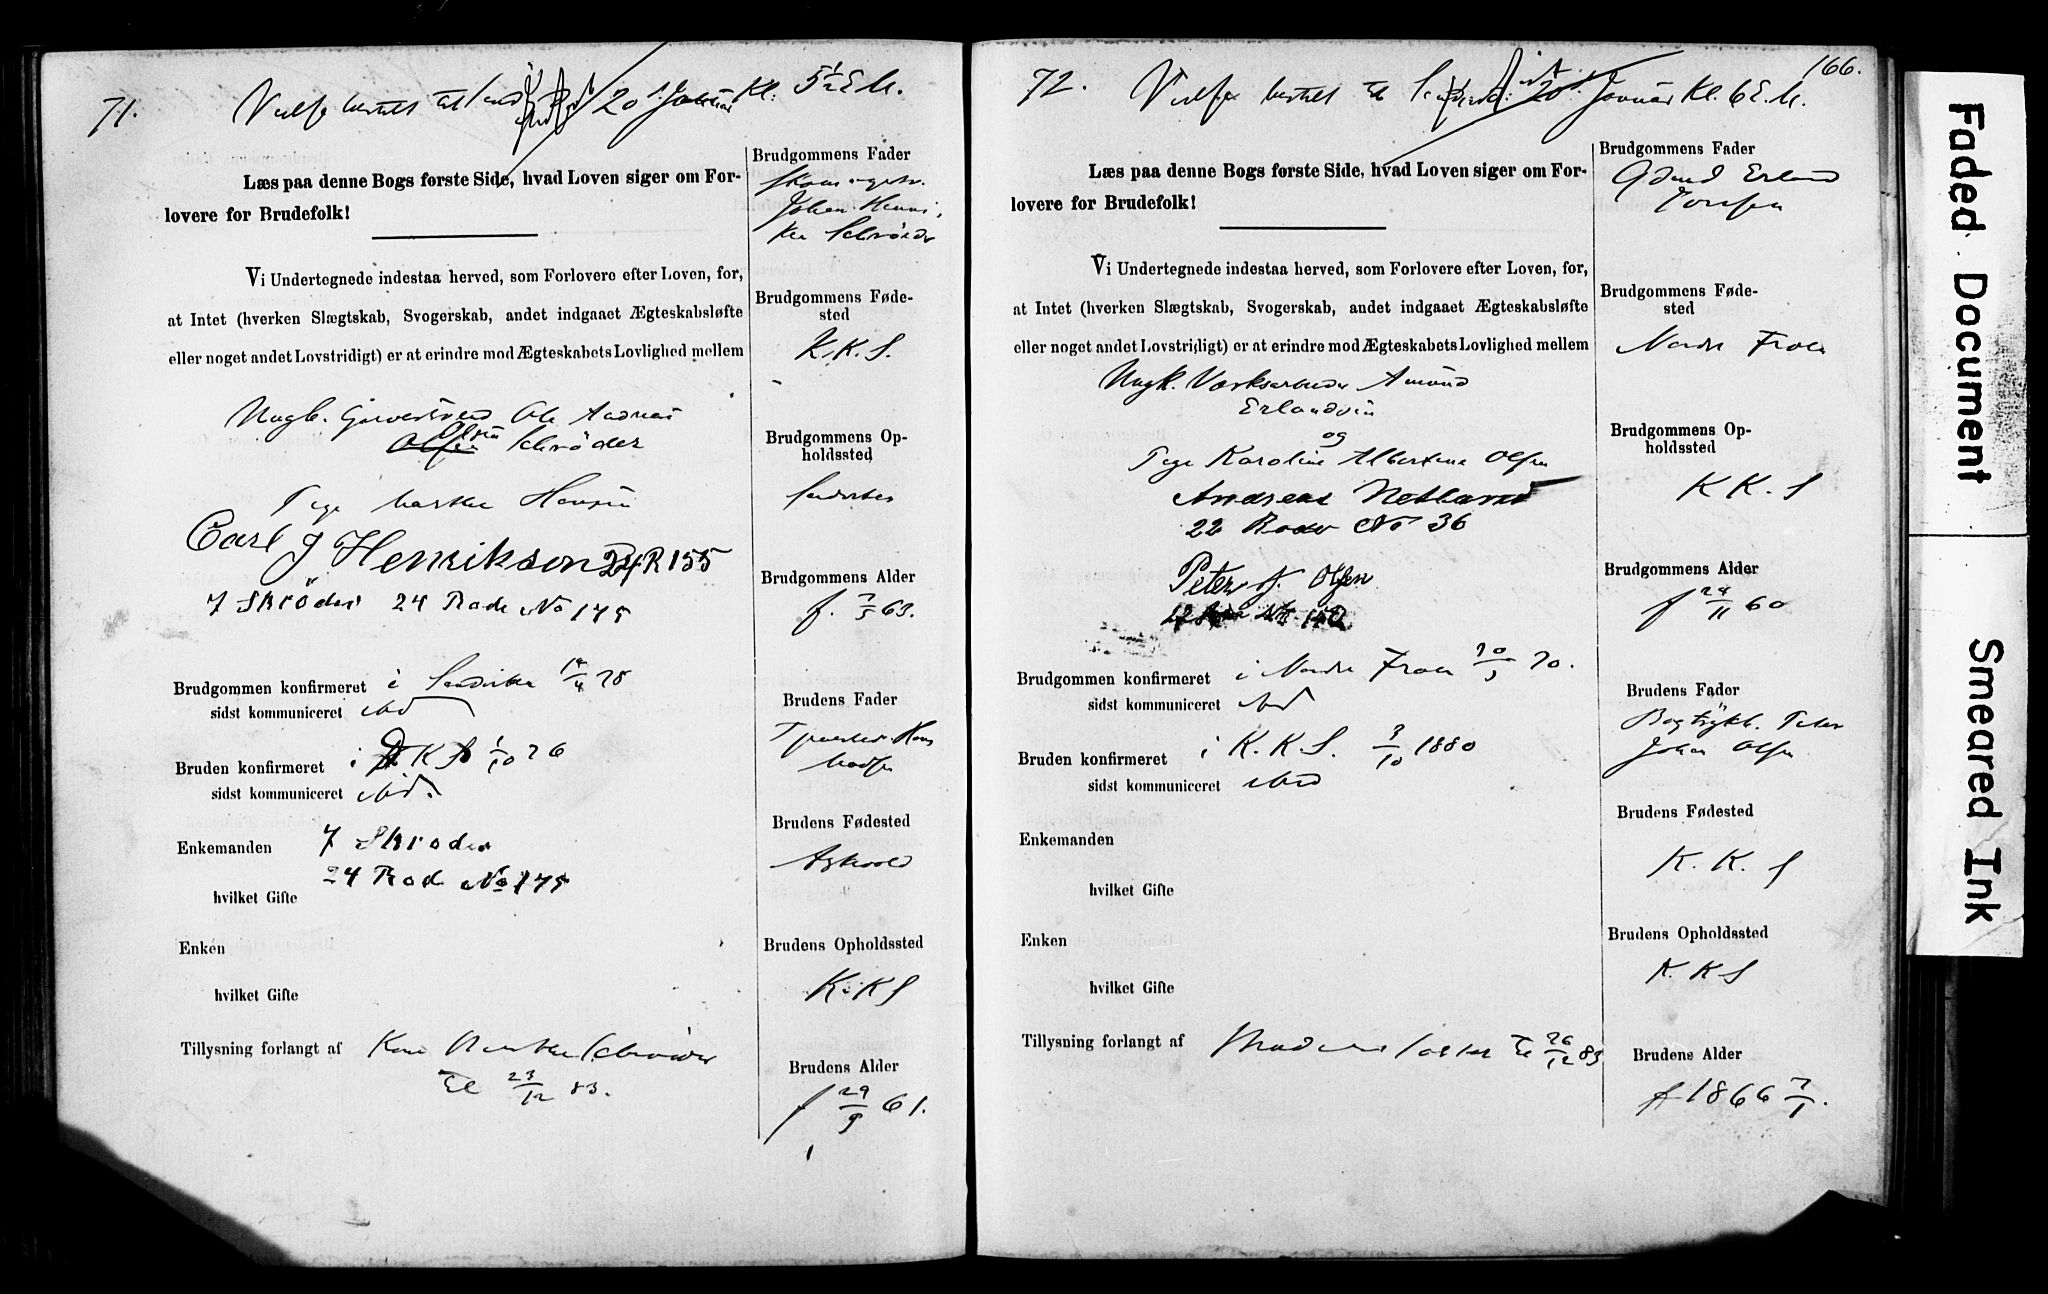 71.
Vielse bestilt til 20 Januar Kl. 5½ E M.
Læs paa denne Bogs første Side, hvad Loven siger om For-
lovere for Brudefolk!
Vi Undertegnede indestaa herved, som Forlovere efter Loven, for,
at Intet (hverken Slægtskab, Svogerskab, andet indgaaet Ægteskabsløfte
eller noget andet Lovstridigt) er at erindre mod Ægteskabets Lovlighed mellem
Ungk. Ole Andreas
Olsen Schrøder
Pige Hansen
Carl J Henrikson 24 R 155
J Skrøder 24 Rode No 175
Brudgommen konfirmeret i Sandviken 14/4 78
sidst kommuniceret ibid
Bruden konfirmeret i K K S 1/10 76
sidst kommuniceret ibid.
Enkemanden J Skroder
24 Rod No 175
hvilket Gifte
Enken
hvilket Gifte
Tillysning forlangt af Schrøder
til 23/12 83.
Brudgommens Fader
Johan Henri-
Schrøder
Brudgommens Føde-
sted
K. K. S.
Brudgommens Op-
holdssted
Sandviken
Brudgommens Alder
f. 7/5 63.
Brudens Fader
Hans
Madsen
Brudens Fødested
Askvold
Brudens Opholdssted
K. K S
Brudens Alder
f 29/9 61.
166.
72.
Vielse bestilt til 20 Januar Kl. 6 E. M.
Læs paa denne Bogs første Side, hvad Loven siger om For-
lovere for Brudefolk!
Vi Undertegnede indestaa herved, som Forlovere efter Loven, for,
at Intet (hverken Slægtskab, Svogerskab, andet indgaaet Ægteskabsløfte
eller noget andet Lovstridigt) er at erindre mod Ægteskabets Lovlighed mellem
Ungk. Værksarbeider Amund
Erlandsen
og
Pige Karoline Albertine Olsen
Andreas Netland
22 Rode No 36
Peter J. Olsen
Brudgommen konfirmeret i Nordre Fron 70.
sidst kommuniceret ibid
Bruden konfirmeret i K. K. S. 3/10 1880
sidst kommuniceret ibid
Enkemanden
hvilket Gifte
Enken
hvilket Gifte
Tillysning forlangt af til 26/12 83
Brudgommens Fader
Gmd Erland
Brudgommens Føde-
sted
Nordre Fron
Brudgommens Op-
holdssted
K K. S
Brudgommens Alder
f 24/11 60
Brudens Fader
Bogtrykk. Peter
Johan Olsen
Brudens Fødested
K. K. S
Brudens Opholdssted
K. K S
Brudens Alder
f 1866 7/1.
Faded Document
Smeared Ink